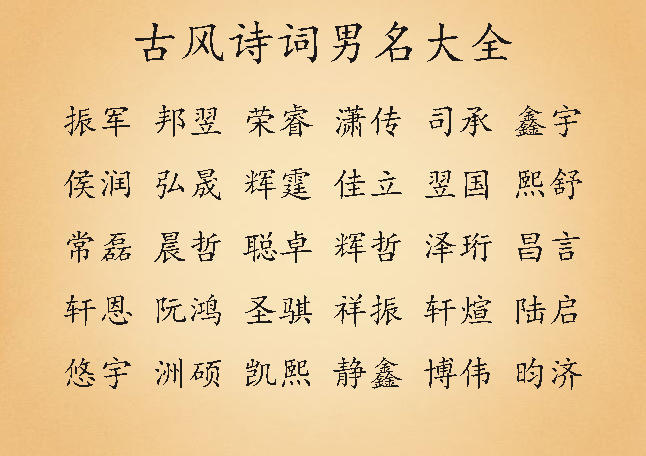 古风诗词男名大全
振军 邦翌 荣睿 潇传 司承 鑫宇
侯润 弘晟 辉霆 佳立 翌国 熙舒
常磊 晨哲 聪卓 辉哲 泽珩 昌言
轩恩 阮鸿 圣骐 祥振 轩煊 陆启
悠宇 洲硕 凯熙 静鑫 博伟 昀济